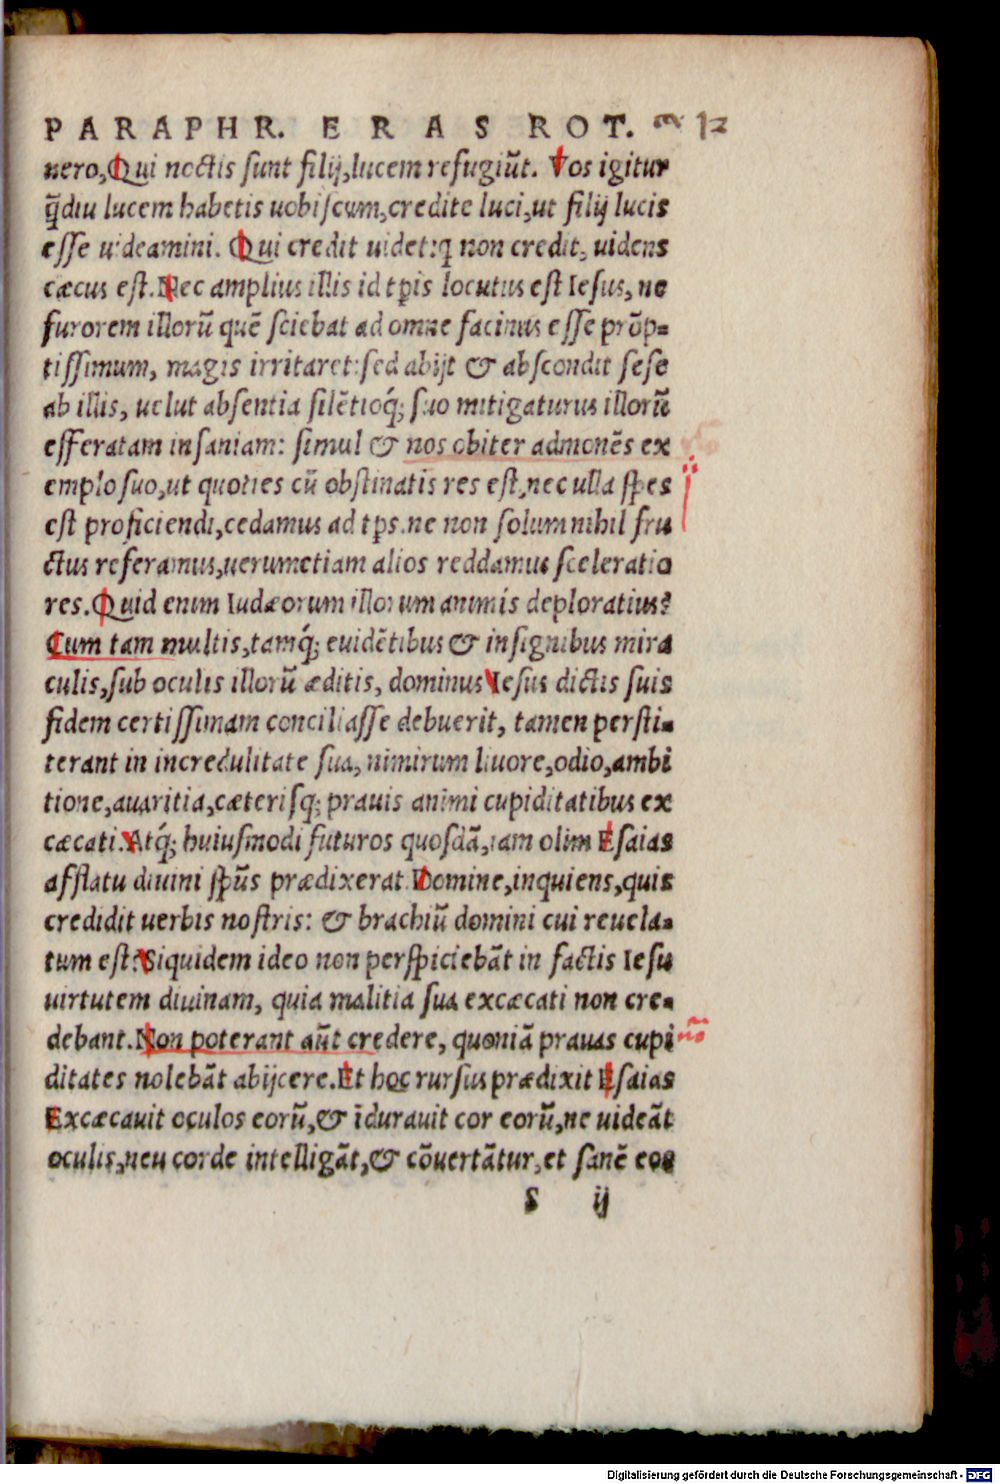 PARAPHR. ERAS ROT. 12
nero,Qui noctis sunt filij,lucem refugiũt. Vos igitur
q̃diu lucem habetis uobiscum,credite luci,ut filij lucis
esse uideamini. Qui credit uidet:q non credit, uidens
cæcus est.Nec amplius illis id tp̃is locutus est Iesus, ne
furorem illorũ quẽ sciebat ad omne facinus esse prõp=
tissimum, magis irritaret:sed abijt & abscondit sese
ab illis, uelut absentia silẽtioq́; suo mitigaturus illorũ
efferatam insaniam: simul & nos obiter admonẽs ex
emplo suo,ut quoties cũ obstinatis res est,nec ulla spes
est proficiendi,cedamus ad tp̃s.ne non solum nihil fru
ctus referamus,uerumetiam alios reddamus sceleratio
res.Quid enim Iudæorum illorum animis deploratius?
Cum tam multis,tamq́; euidẽtibus & insignibus mira
culis,sub oculis illorũ æditis, dominus Iesus dictis suis
fidem certissimam conciliasse debuerit, tamen persti=
terant in incredulitate sua, nimirum liuore,odio,ambi
tione,auaritia,cæterisq; prauis animi cupiditatibus ex
cæcati.Atq́; huiusmodi futuros quosdã,iam olim Esaias
afflatu diuini sp̃us prædixerat.Domine,inquiens,quis
credidit uerbis nostris: & brachiũ domini cui reuela=
tum est?Siquidem ideo non perspiciebãt in factis Iesu
uirtutem diuinam, quia malitia sua excæcati non cre=
debant.Non poterant aũt credere, quoniã prauas cupi
ditates nolebãt abijcere.Et hoc rursus prædixit Esaias
Excæcauit oculos eorũ,& ĩdurauit cor eorũ,ne uideãt
oculis,neu corde intelligãt,& cõuertãtur,et sanẽ eos
s ij
Digitalisierung gefördert durch die Deutsche Forschungsgemeinschaft - DFG